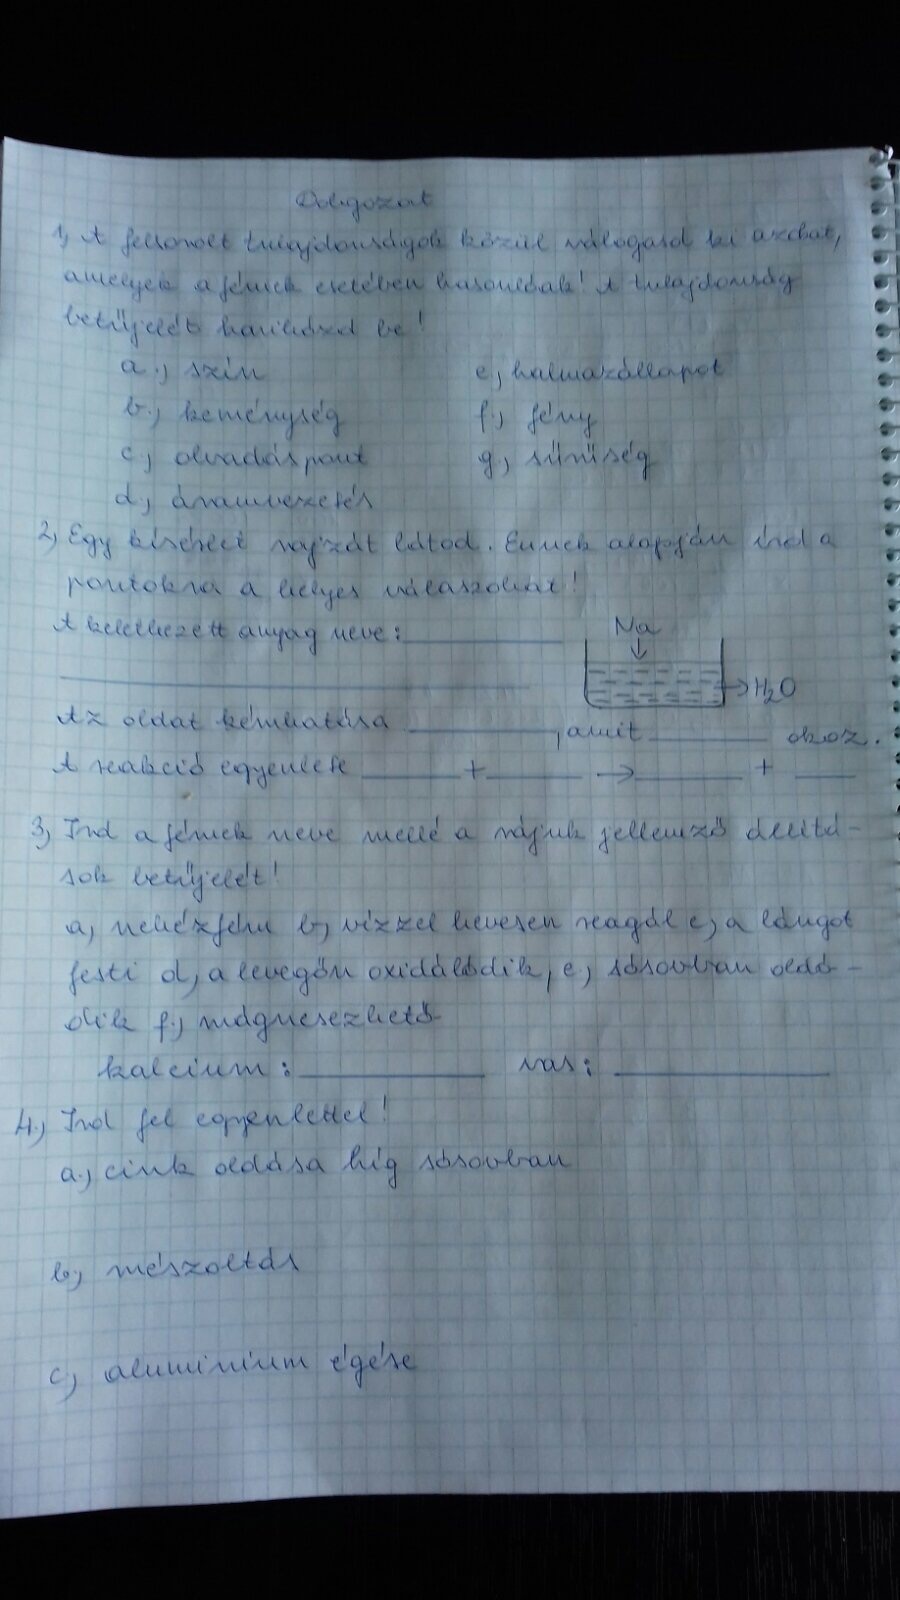 Dolgozat
1, A felsorolt tulajdonságok közül válogasd ki azokat,
amelyek a fémek esetében hasonlóak! A tulajdonság
betűjelét karikázd be!
a., szín e, halmazállapot
b., keménység f., fény
c., olvadáspont g., sűrűség
d., áramvezetés
2, Egy kísérlet rajzát látod. Ennek alapján írd a
pontokra a helyes válaszokat!
A keletkezett anyag neve: Na
H2O
Az oldat kémhatása , amit okoz.
A reakció egyenlete + → +
3, Írd a fémek neve mellé a rájuk jellemző állítá-
sok betűjelét!
a, nehézfém b, vízzel hevesen reagál c, a lángot
festi d, a levegőn oxidálódik, e, sósavban oldó-
dik f., mágnesezhető
kalcium: vas:
4., Írd fel egyenlettel!
a., cink oldása híg sósavban
b, mészoltás
c, aluminium égése